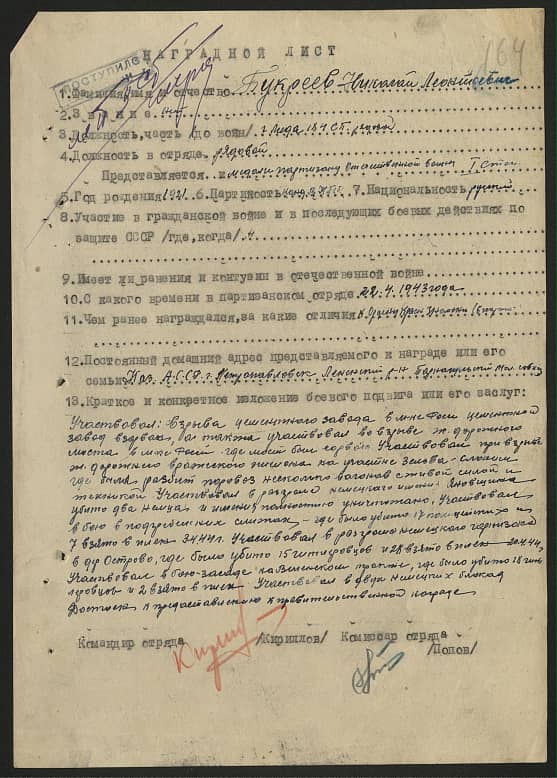 164
ПОСТУПИЛ
НАГРАДНОЙ ЛИСТ
1.Фамилия, имя и отчество Букреев Николай Леонтьевич
2.Звание
3.Должность, часть /до войны/ г Лида 184 С.П. рядов
4.Должность в отряде. рядовой
Представляется к медали партизану отечественной войны I степ
5.Год рождения 1921 6.Партийность 7.Национальность русский
8.Участие в гражданской войне и в последующих боевых действиях по
защите СССР /где,когда/
9.Имеет ли ранения и контузии в отечественной войне
10.С какого времени в партизанском отряде. 22.4.1943 года
11.Чем ранее награждался,за какие отличия
12.Постоянный домашний адрес представляемого к награде или его
семьи Каз. АССР г. Петропавловск Ленинский р-н
13.Краткое и конкретное изложение боевого подвига или его заслуг:
Участвовал: Взрыва цементного завода в м-не Рось цементной
завод взорван, а также участвовал во взрыве ж. дорожного
моста в м-не Рось где мост был сорван. Участвовал при взрыве
ж. дорожного вражеского эшелона на участке Зельва-Слоним
где был разбит паровоз несколько вагонов с живой силой и
техникой Участвовал в разгроме немецкого имения Яновщина
убито два немца и имение полностью уничтожено, Участвовал
в бою в - где было убито 17 полицейских и
7 взято в плен 3.4.44г. Участвовал в разгроме немецкого гарнизона
в др Острово, где было убито 15 гитлеровцов и 28 взято в плен 30.4.44,
Участвовал в бою-засаде на тракте, где было убито 18 гит-
леровцов и 2 взято в плен Участвовал в двух немецких блокад
Достоен к предоставлению к правительственной награде
Командир отряда /Кириллов/ Комиссар отряда
/Попов/